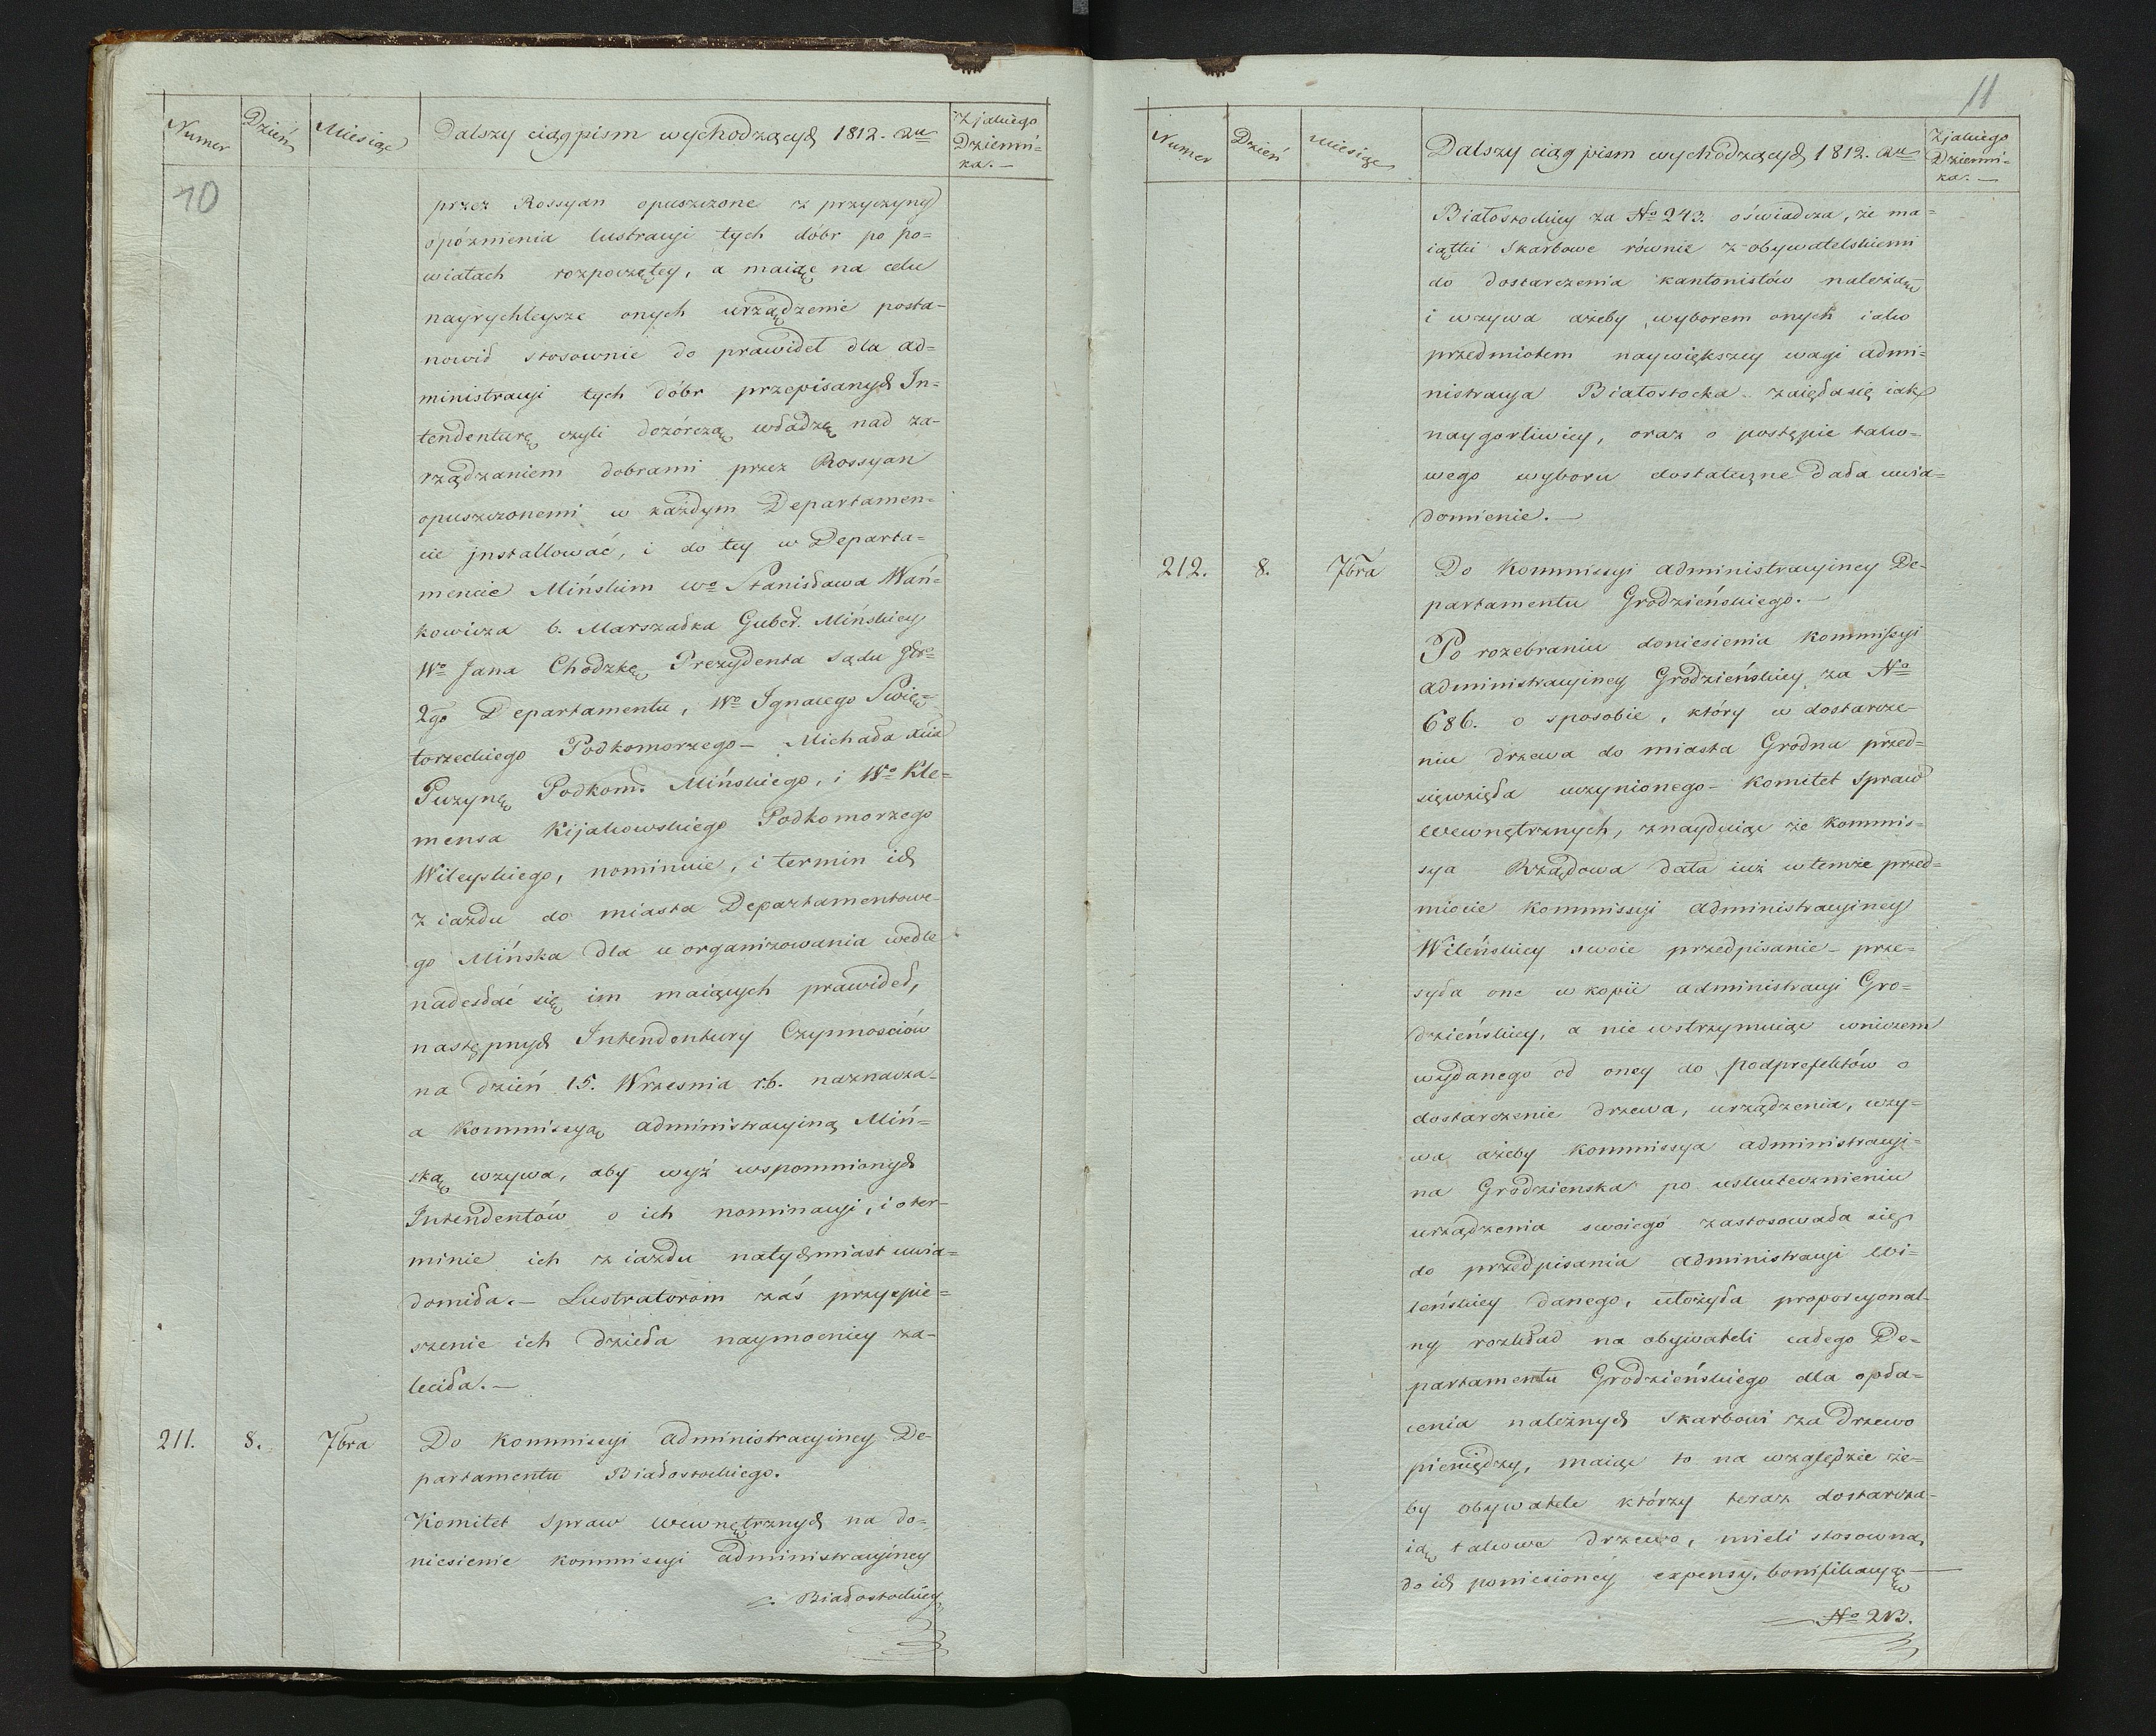 Numer Dzień Miesiąc Dalszy ciąg pism wychodzących 1812. Ru Z jakiego Dzienni=
ka.—
10
przez Rossyan opuszczone z przyczyny
opóznienia lustracyi tych dóbr po po=
wiatach rozpoczętey, a maiąc na celu
nayrychleysze onych urządzenie posta=
nowił stosownie do prawideł dla ad=
ministracyi tych dóbr przepisanych In=
tendenturę czyli dozórczą władzę nad za=
rządzaniem dobrami przez Rossyan
opuszczonemi w każdym Departamen=
cie jnstallować, i do tey w Departa=
mencie Mińskim Wo Stanisława Wań=
kowicza b. Marszałka Guber. Mińskiey
Wo Jana Chodzkę Prezydenta sądu Głó=
2go Departamentu, Wo Ignacego Swię=
torzeckiego Podkomorzego — Michała Xcia
Puzynę Podkom. Mińskiego, i Wo Kle=
mensa Kijakowskiego Podkomorzego
Wileyskiego, nominuie, i termin ich
ziazdu do miasta Departamentowe=
go Mińska dla uorganizowania wedle
nadesłać się im maiących prawideł,
następnych Intendentury Czynnościów
na dzień 15. Wrzesnia r.b. naznacza=
a Kommissyą administracyiną Miń=
ską wzywa, aby wyż wspomnionych
Intendentów o ich nominacyi, i o ter=
minie ich ziazdu natychmiast uwia=
domiła.— Lustratorom zaś przyspie=
szenie ich dzieła naymocniey za=
leciła.—
211. 8. 7bra Do Kommissyi administracyiney De=
partamentu Białostockiego.
Komitet Spraw Wewnętrznych na do=
niesienie Kommissyi administracyiney
Białostockiey
11
Numer Dzień Miesiąc Dalszy ciąg pism wychodzących 1812. Ru Z jakiego Dzienni=
ka.—
Białostockiey za No 243. oświadcza, że ma=
iątki Skarbowe równie z obywatelskiemi
do dostarczenia kantonistów należą
i wzywa ażeby wyborem onych iako
przedmiotem naywiększey wagi admi=
nistracya Białostocka zaięła się iak
naygorliwiey, oraz o postępie tako=
wego wyboru dostateczne dała uwia=
domienie.—
212. 8. 7bra Do Kommissyi administracyiney De=
partamentu Grodzieńskiego.—
Po rozebraniu doniesienia Kommissyi
administracyiney Grodzieńskiey za No
686. o sposobie, który w dostarcze=
niu drzewa do miasta Grodna przed=
sięwzięła uczynionego — Komitet Spraw
Wewnętrznych, znayduiąc że Kommis=
sya Rządowa dała iuż w temże przed=
miocie Kommissyi administracyiney
Wileńskiey swoie przedpisanie — prze=
syła one w kopii administracyi Gro=
dzieńskiey, a nie wstrzymuiąc wniczem
wydanego od oney do podprefektów o
dostarczenie drzewa, urządzenia, wzy=
wa ażeby Kommissya administracyi=
na Grodzienska po uskutecznieniu
urządzenia swoiego zastosowała się
do przedpisania administracyi Wi=
leńskiey danego, ułożyła proporcyonal=
ny rozkład na obywateli całego De=
partamentu Grodzieńskiego dla opła=
cenia należnych Skarbowi za drzewo
pieniędzy, maiąc to na względzie że=
by obywatele którzy teraz dostarcza=
ią takowe drzewo, mieli stosowną
do ich poniesioney expensy, bonifikacyą —
No 213.